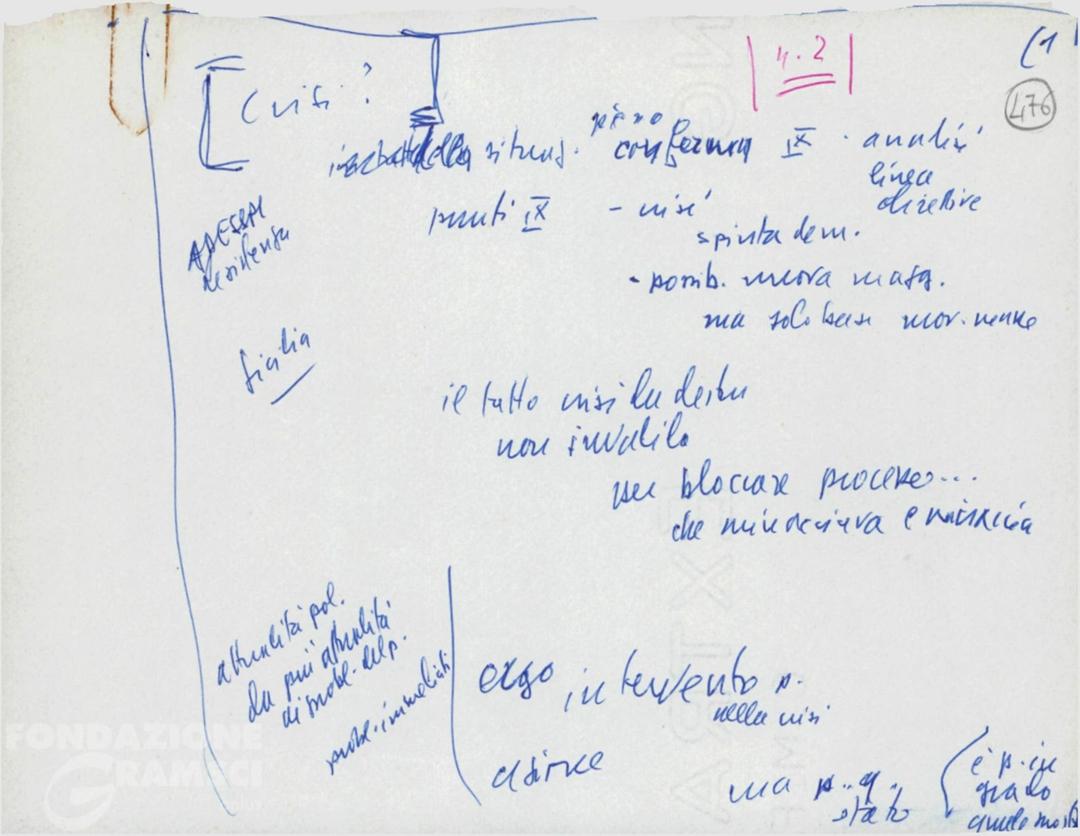 (1
n. 2
476
[Crisi?]
situaz. piena conferma IX · analisi
linea
direttive
punti IX - crisi
spinta dem.
- possib. nuova magg.
ma solo base mov. masse
ADESSO
Sicilia
il tutto crisi da destra
non invalida
per bloccare processo...
che minacciava e minaccia
attualità pol.
da più attualità
di probl. del p.
probl. immediati
ergo intervento p.
nella crisi
azione
ma p. q. stato
è p. in
grado